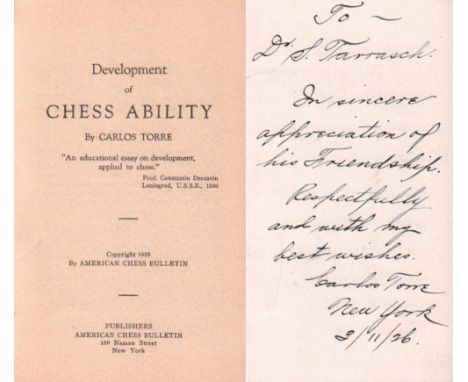 Development
of
CHESS ABILITY
By CARLOS TORRE
"An educational essay on development,
applied to chess."
Prof. Constantin Dersavin
Leningrad, U.S.S.R., 1926
Copyright 1926
By AMERICAN CHESS BULLETIN
PUBLISHERS
AMERICAN CHESS BULLETIN
150 Nassau Street
New York
To —
Dr. S. Tarrasch.
In sincere
appreciation of
his Friendship.
Respectfully
and with my
best wishes.
Carlos Torre
New York
3/11/26.